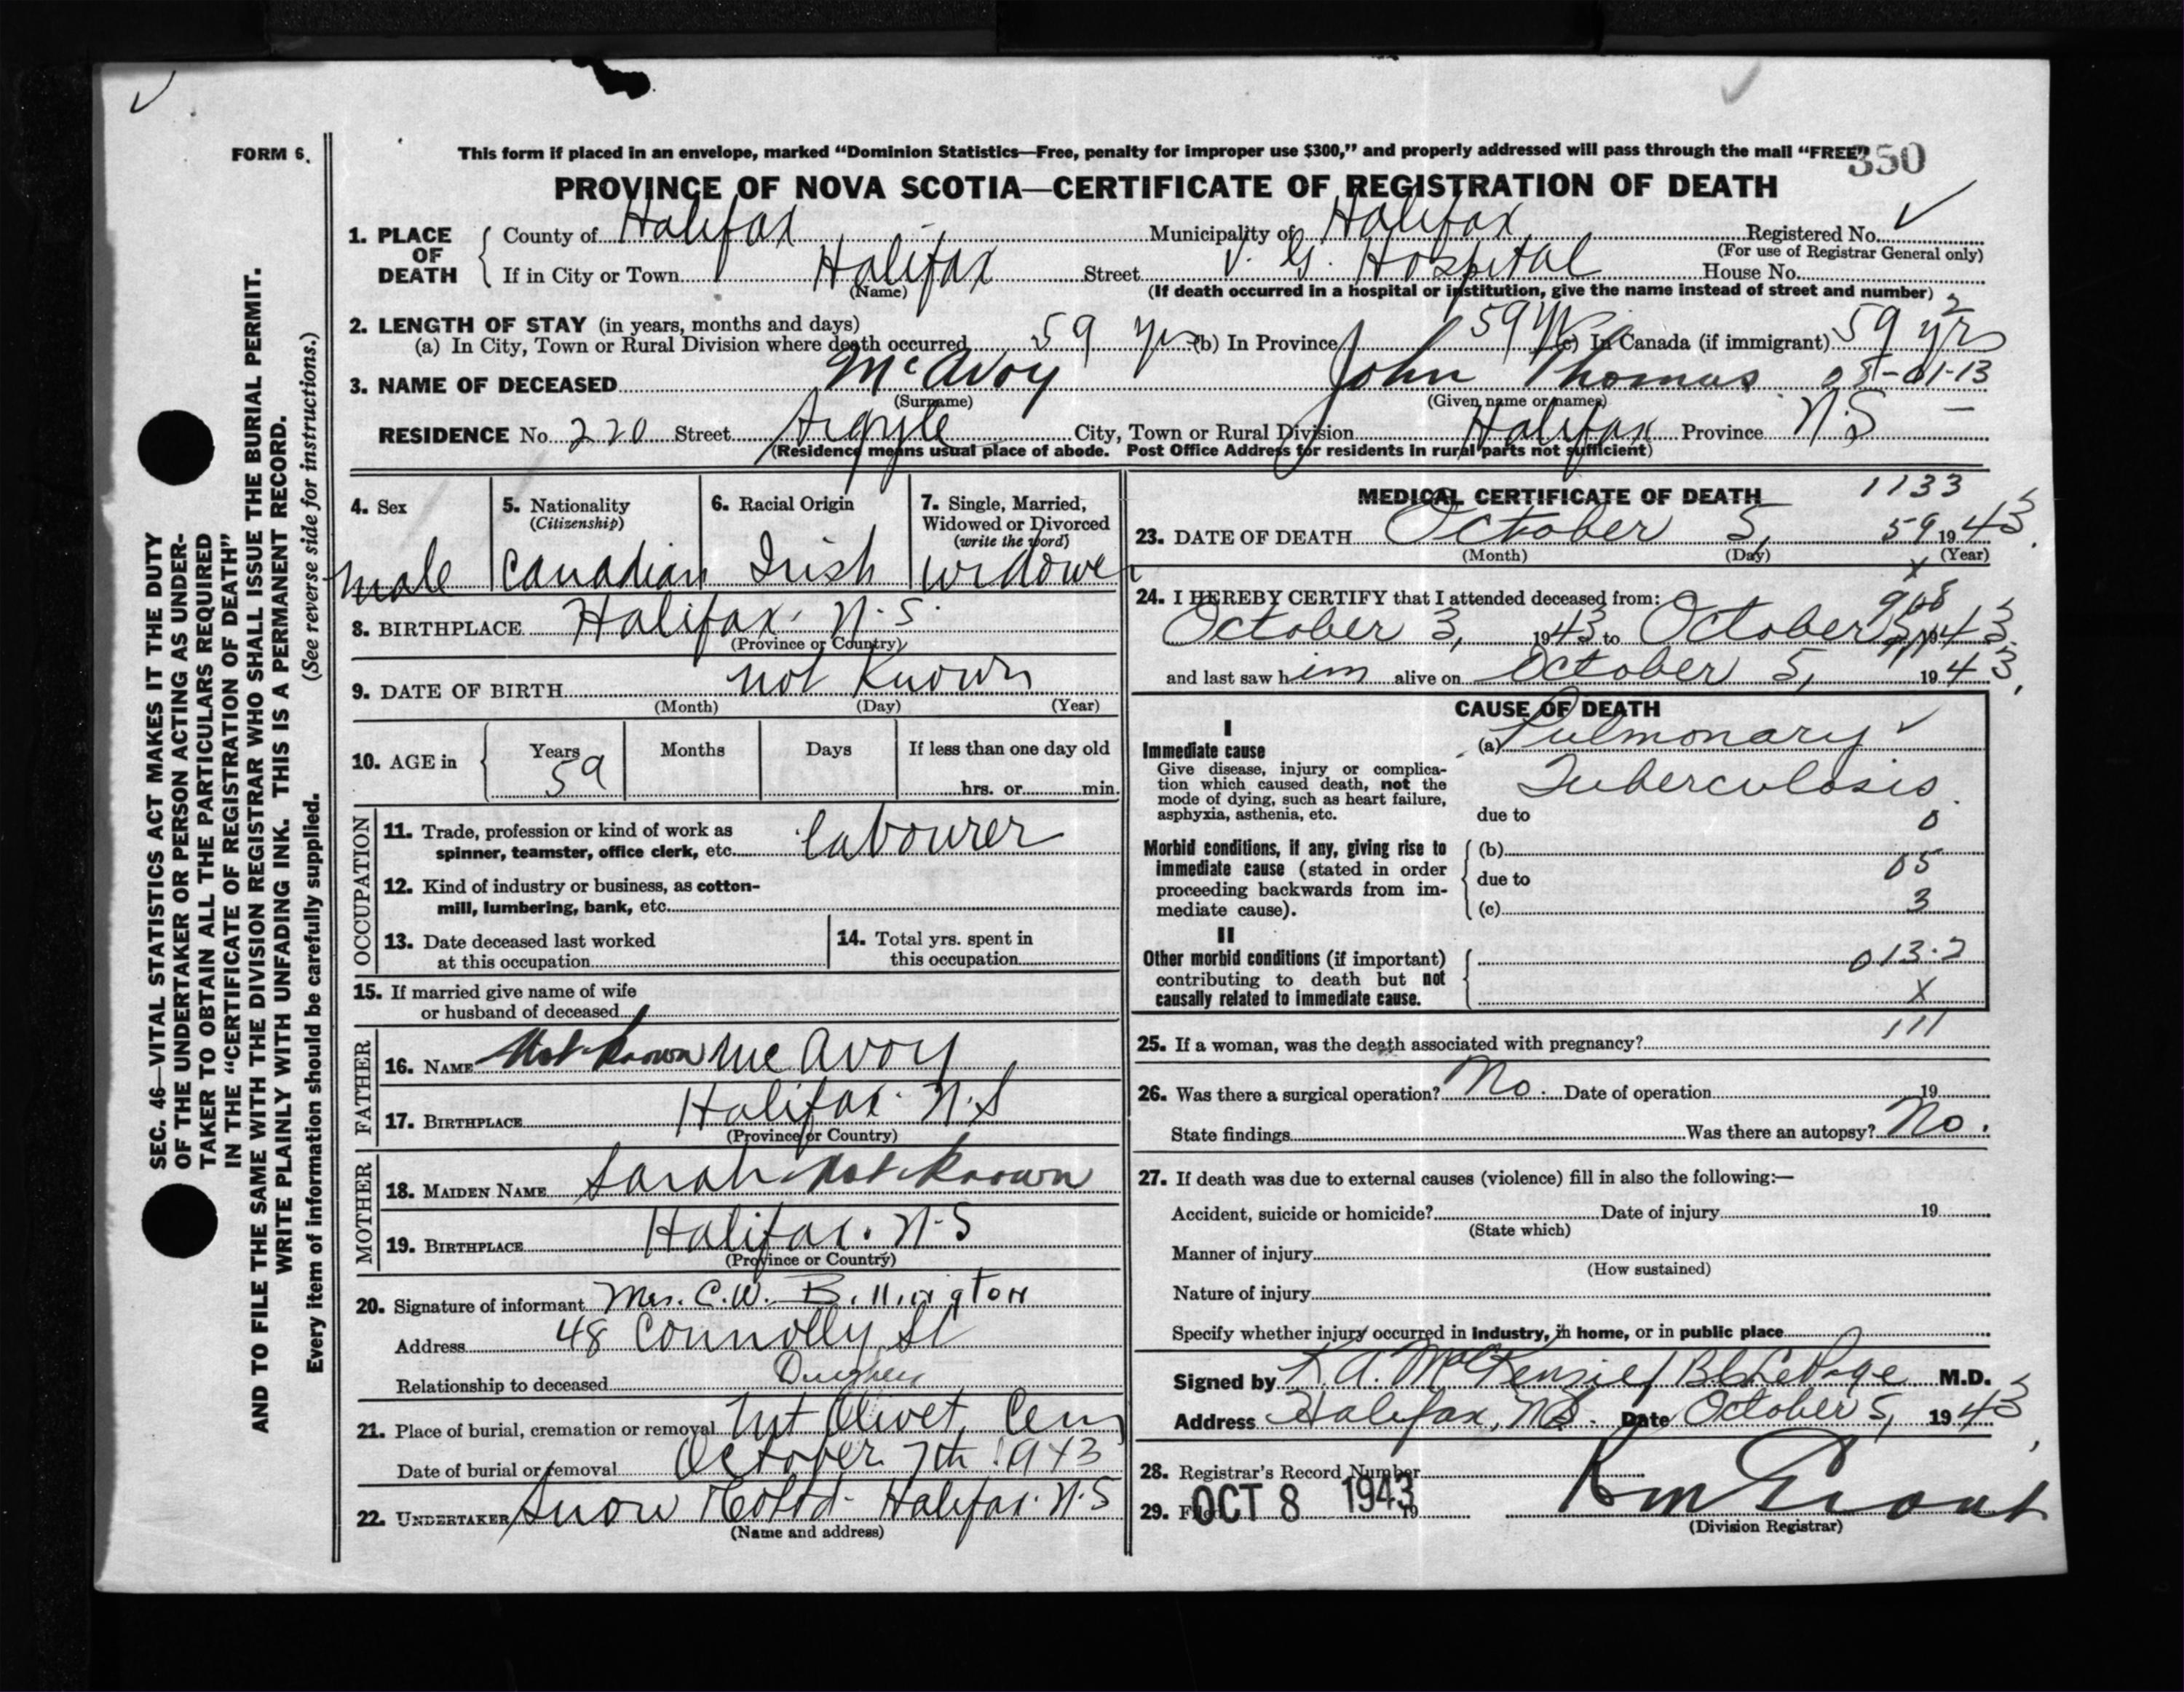 FORM 6.
This form if placed in an envelope, marked “Dominion Statistics—Free, penalty for improper use $300,” and properly addressed will pass through the mail “FREE”
350
PROVINCE OF NOVA SCOTIA—CERTIFICATE OF REGISTRATION OF DEATH
1. PLACE OF DEATH County of Halifax Municipality of Halifax Registered No.
(For use of Registrar General only)
If in City or Town Halifax Street V. G. Hospital House No.
(Name) (If death occurred in a hospital or institution, give the name instead of street and number)
2. LENGTH OF STAY (in years, months and days) 2
(a) In City, Town or Rural Division where death occurred 59 yrs (b) In Province 59 yrs (c) In Canada (if immigrant) 59 yrs
3. NAME OF DECEASED McAvoy John Thomas 08-01-13
(Surname) (Given name or names)
RESIDENCE No. 220 Street Argyle City, Town or Rural Division Halifax Province N.S –
(Residence means usual place of abode. Post Office Address for residents in rural parts not sufficient)
SEC. 46—VITAL STATISTICS ACT MAKES IT THE DUTY
OF THE UNDERTAKER OR PERSON ACTING AS UNDER-
TAKER TO OBTAIN ALL THE PARTICULARS REQUIRED
IN THE “CERTIFICATE OF REGISTRATION OF DEATH”
AND TO FILE THE SAME WITH THE DIVISION REGISTRAR WHO SHALL ISSUE THE BURIAL PERMIT.
WRITE PLAINLY WITH UNFADING INK. THIS IS A PERMANENT RECORD.
Every item of information should be carefully supplied. (See reverse side for instructions.)
4. Sex 5. Nationality 6. Racial Origin 7. Single, Married,
(Citizenship) Widowed or Divorced
(write the word)
male Canadian Irish widower
8. BIRTHPLACE Halifax. N.S.
(Province or Country)
9. DATE OF BIRTH not Known
(Month) (Day) (Year)
10. AGE in Years Months Days If less than one day old
59 hrs. or min.
OCCUPATION
11. Trade, profession or kind of work as
spinner, teamster, office clerk, etc. labourer
12. Kind of industry or business, as cotton-
mill, lumbering, bank, etc.
13. Date deceased last worked
at this occupation
14. Total yrs. spent in
this occupation
15. If married give name of wife
or husband of deceased
FATHER
16. NAME Not known McAvoy
17. BIRTHPLACE Halifax. N.S
(Province or Country)
MOTHER
18. MAIDEN NAME Sarah Not Known
19. BIRTHPLACE Halifax. N.S
(Province or Country)
20. Signature of informant Mrs. C.W. Billington
Address 48 Connolly St
Relationship to deceased Daughter
21. Place of burial, cremation or removal Mt Olivet Cem
Date of burial or removal October 7th 1943
22. UNDERTAKER Snow & Co Ltd. Halifax. N.S
(Name and address)
MEDICAL CERTIFICATE OF DEATH 1133
23. DATE OF DEATH October 5, 59 1943
(Month) (Day) (Year)
x
24. I HEREBY CERTIFY that I attended deceased from:
October 3, 1943 to October 5, 1943
and last saw him alive on October 5, 1943,
CAUSE OF DEATH
I
Immediate cause
Give disease, injury or complica-
tion which caused death, not the
mode of dying, such as heart failure,
asphyxia, asthenia, etc.
(a) Pulmonary
Tuberculosis
due to
0
Morbid conditions, if any, giving rise to
immediate cause (stated in order
proceeding backwards from im-
mediate cause).
(b)
05
due to
(c) 3
II
Other morbid conditions (if important)
contributing to death but not
causally related to immediate cause.
013.2
X
111
25. If a woman, was the death associated with pregnancy?
26. Was there a surgical operation? No. Date of operation 19
State findings Was there an autopsy? No.
27. If death was due to external causes (violence) fill in also the following:—
Accident, suicide or homicide? Date of injury 19
(State which)
Manner of injury
(How sustained)
Nature of injury
Specify whether injury occurred in Industry, in home, or in public place
Signed by K. A. MacKenzie / LePage M.D.
Address Halifax, N.S. Date October 5, 1943
28. Registrar's Record Number
29. Filed OCT 8 1943 19
(Division Registrar)